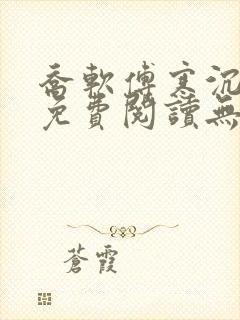 喬軟傅寒沉
免費閱讀無
蒼霞